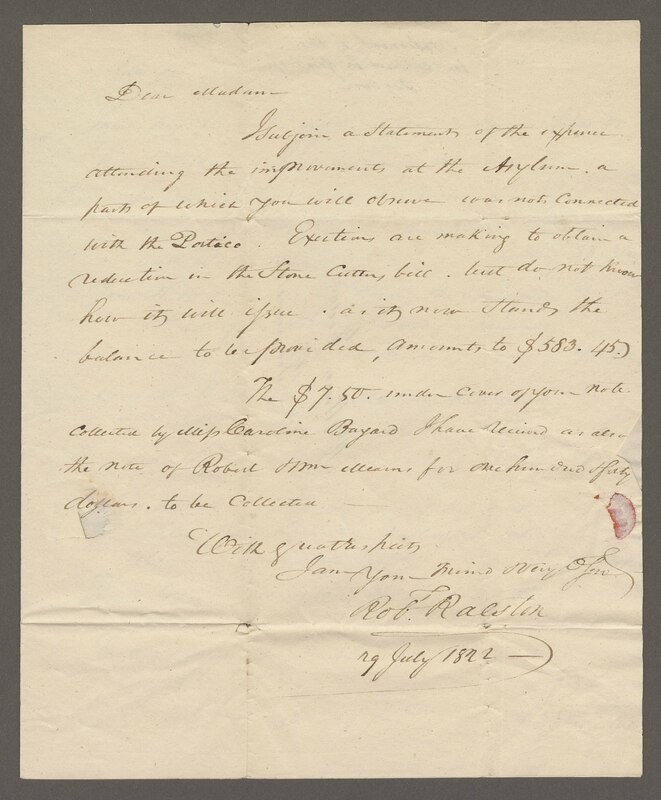 Dear Madam
I subjoin a Statement of the expence
attending the improvements at the Asylum. a
part of which you will observe was not Connected
with the Portico. Exertions are making to obtain a
reduction in the Stone Cutters bill. but do not know
how it will issue. as it now Stands the
balance to be provided, amounts to $583.45.)
The $7.50. under cover of your note
collected by Miss Caroline Bayard I have received as also
the note of Robert & Wm Means for one hundred & fifty
dollars. to be Collected
With great respects
I am Your Friend & very
Robt. Ralston
29 July 1822